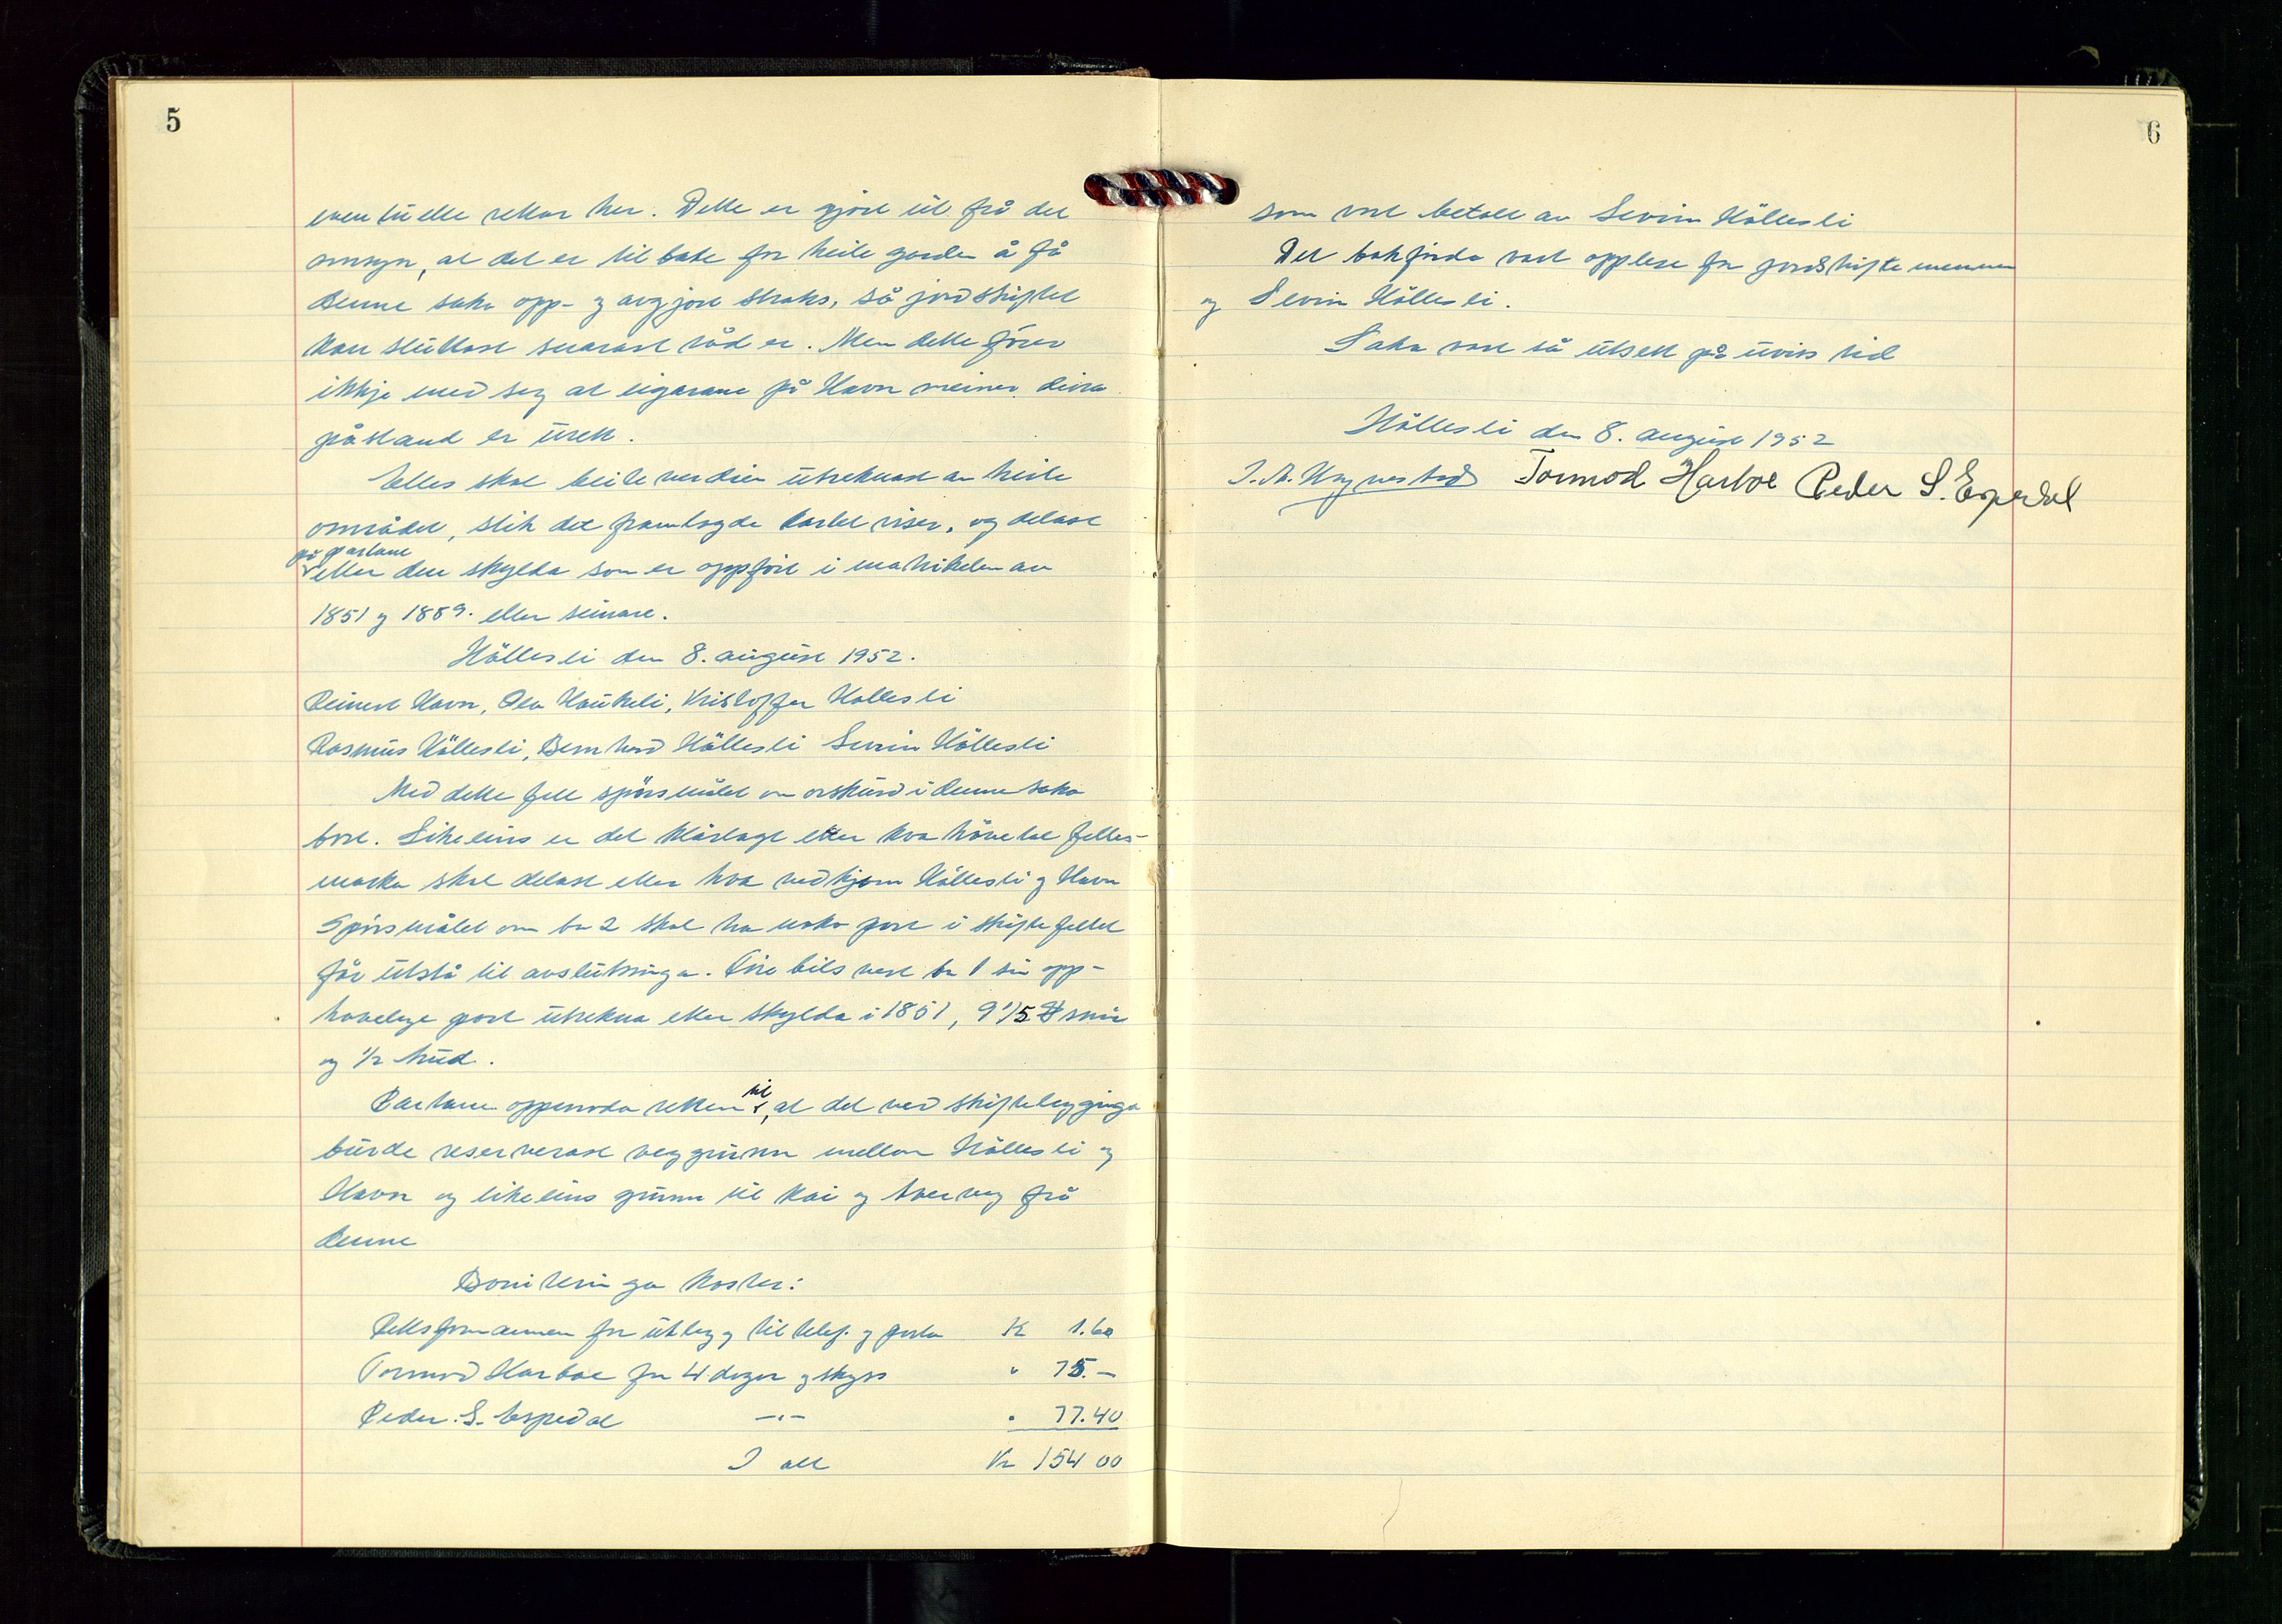 5
eventuelle rettar her. Dette er gjort ut frå det
omsyn, at det er til bate for heile garden å få
denne saka opp- og avgjort straks, så jordskiftet
kan sluttast snarast råd er. Men dette fører
ikkje med seg at eigarane på Havn meiner deira
påstand er urett.
Elles skal beiteverdien utreknast av heile
området, slik det framlagde kartet viser, og delast
på partane
etter den skylda som er oppført i matrikelen av
1851 og 1889. eller seinare.
Höllesli den 8. august 1952.
Reinert Havn, Ola Haukeli, Kristoffer Hollesli
Rasmus Höllesli, Bernhard Höllesli Severin Höllesli
Med dette fell spörsmålet om orskurd i denne saka
bort. Likeleins er det klårlagt etter kva høvetal felles-
marka skal delast etter kva vedkjem Höllesli og Havn
Spörsmålet om br 2 skal ha noko part i skiftefeltet
får utstå til avslutninga. Fire bils vert br 1 sin opp-
havelege part utrekna etter skylda i 1851, 9 1/5 ℔ smör
og 1/2 hud.
Partane oppmoda retten til, at det ved skiftelegginga
burde reserverast veggrunn mellom Höllesli og
Havn og likeleins grunn til kai og tverveg frå
denne
Boniteringa kostar:
Rettsformannen for utlegg til telef. og porto Kr 1.60
Tormod Harboe for 4 dagar og skyss " 75.-
Peder S. Espedal -"- " 77.40
I alt Kr 154 00
6
som vart betalt av Severin Höllesli
Det bokförde vart opplese for jordskiftemennene
og Severin Höllesli.
Saka vart så utsett på uviss tid
Höllesli den 8. august 1952
Tormod Harboe Peder S. Espedal